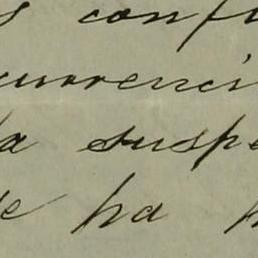 s conf
currenci
a suspe
e ha